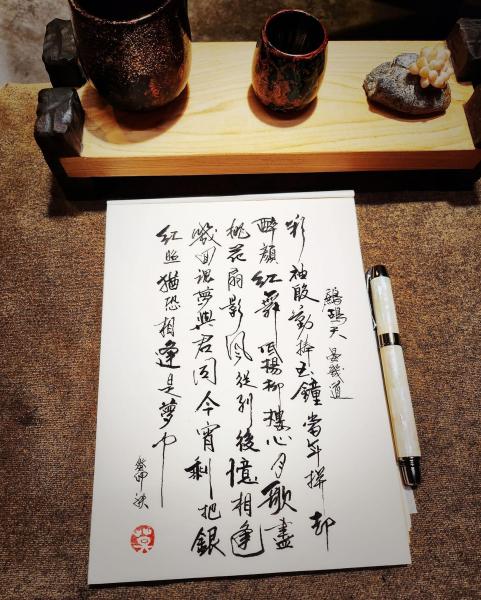 鷓鴣天 晏幾道
彩袖殷勤捧玉鐘當年拼却
醉顏紅舞低楊柳樓心月歌盡
桃花扇影風從別後憶相逢
幾回魂夢與君同今宵剩把銀
釭照猶恐相逢是夢中
癸卯